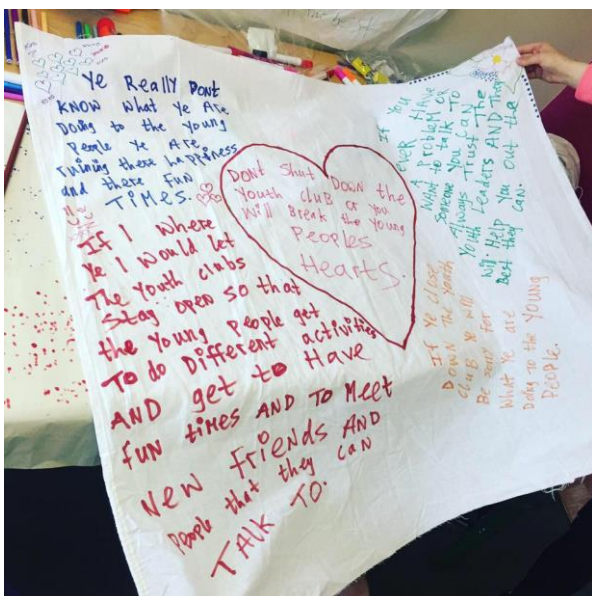 Ye Really Dont
KNOW what Ye Are
Doing to the Young
People Ye Are
ruining there happiness
and there Fun
TIMES.
If I where
Ye I would let
The Youth clubs
stay open so that
the Young People get
To do Different activities
AND get to Have
fun times AND To Meet
New friends AND
People that they can
TALK TO.
DONT Shut DOWN the
Youth cluB or you
Will Break the Young
PEOPLES
Hearts.
If You
EVER HAVE
A Problem or
WANT to talk To
Someone You CAN
Always Trust The
Youth Leaders AND They
Will Help You Out the
Best they Can.
If Ye Close
DOWN The Youth
CluB Ye Will
Be For
What Ye are
Doing to the YOUNG
PEOPLE.